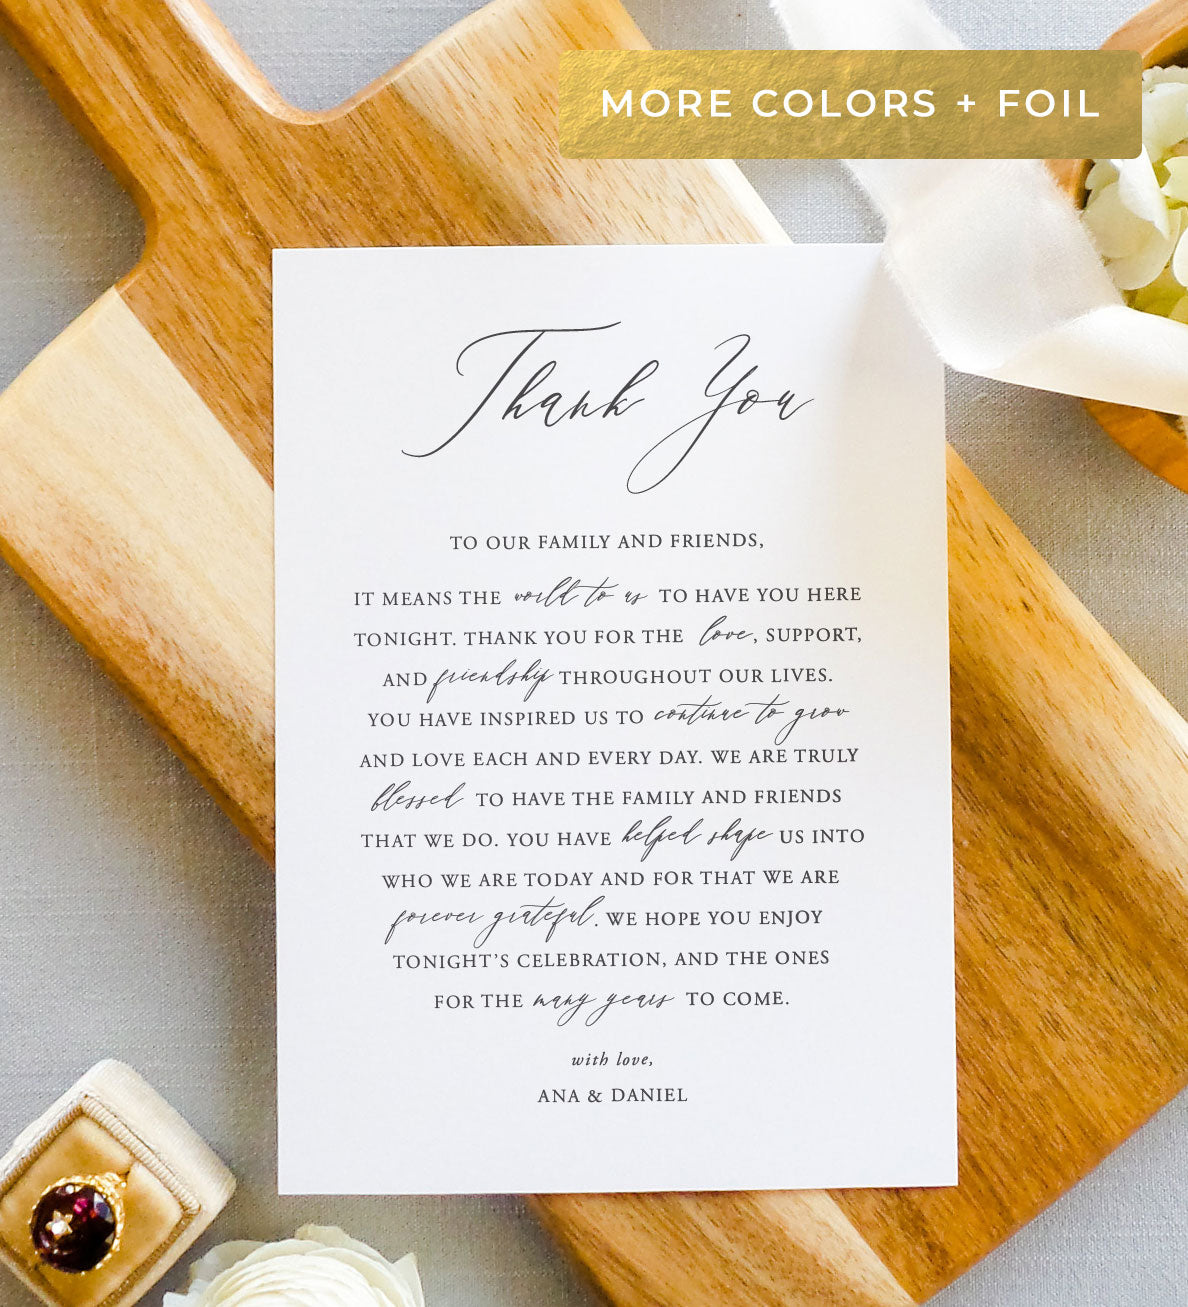 MORE COLORS + FOIL
Thank You
TO OUR FAMILY AND FRIENDS,
IT MEANS THE world to us TO HAVE YOU HERE
TONIGHT. THANK YOU FOR THE love, SUPPORT,
AND friendship THROUGHOUT OUR LIVES.
YOU HAVE INSPIRED US TO continue to grow
AND LOVE EACH AND EVERY DAY. WE ARE TRULY
blessed TO HAVE THE FAMILY AND FRIENDS
THAT WE DO. YOU HAVE helped shape US INTO
WHO WE ARE TODAY AND FOR THAT WE ARE
forever grateful. WE HOPE YOU ENJOY
TONIGHT'S CELEBRATION, AND THE ONES
FOR THE many years TO COME.
with love,
ANA & DANIEL